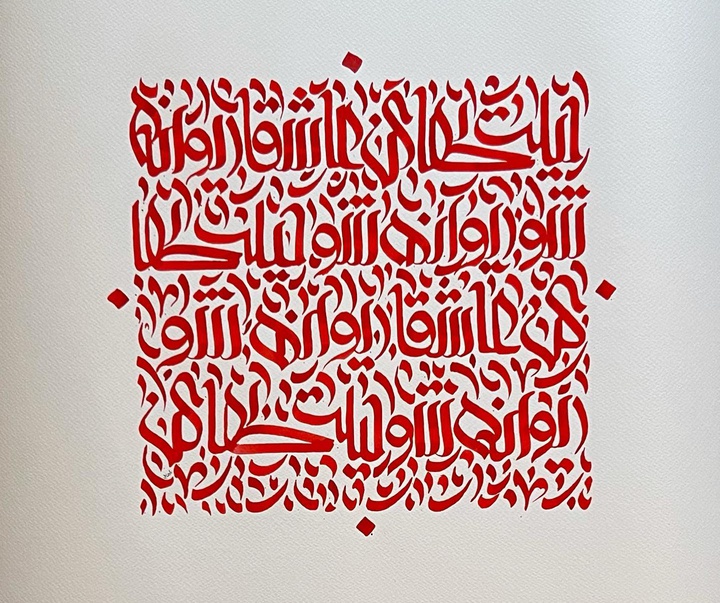 حیلت رها کن عاشقا دیوانه
شو دیوانه شو حیلت رها
کن عاشقا دیوانه شو
دیوانه شو حیلت رها کن